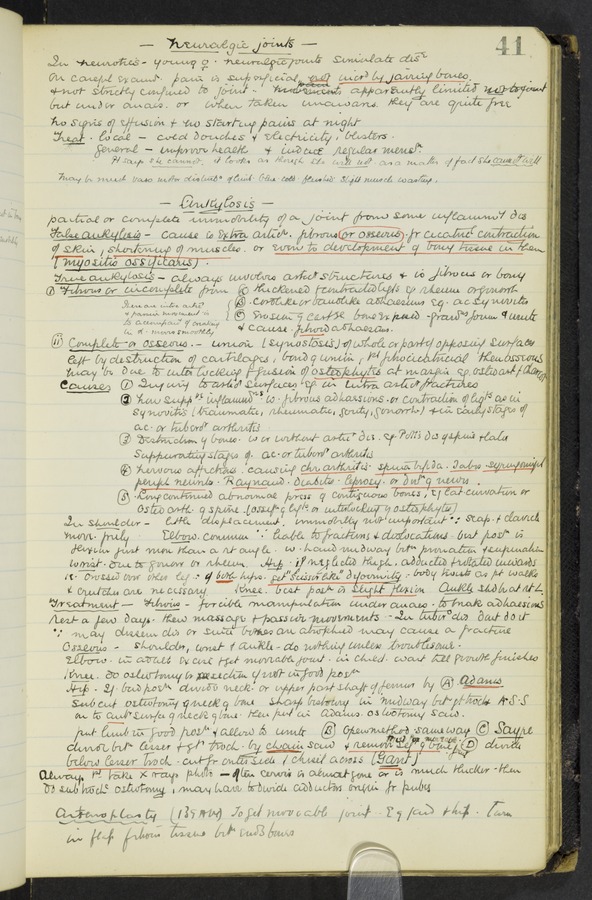 — Neuralgic joints — 41
In neurotics - young ♀. neuralgic joints simulate dis
On careful examt. pain is superficial, not incd by jarring bones,
& not strictly confined to joint. movements apparently limited
but under anaes. or when taken unawares they are quite free
No signs of effusion & no starting pains at night
Treat. local - cold douches & electricity, blisters.
General - improve health & induce regular mens
Pt says she cannot, it looks as though she will not as a matter of fact she cannot will
May be much vaso motor disturb of limb. blue cold flushed. Slight muscle wasting.
— Ankylosis —
partial or complete immobility of a joint from some inflammy dis
False ankylosis - cause is extra artic. fibrous (or osseous) fr cicatric contraction
of skin, shortening of muscles. or even to development of bony tissue in them
(myositis ossificans).
True ankylosis - always involves artic structures & is fibrous or bony
① Fibrous or incomplete from Ⓐ thickened & contracted ligts eg rheum or gonorrh
Ⓑ cordlike or bandlike adhesions eg. ac synovitis
Ⓒ Erosion of cart & bone
& cause fibrous adhesions.
ii Complete or osseous. - union (synostosis) of whole or part of opposing surfaces
left by destruction of cartilages, bond of union, 1st fibrocicatricial then osseous
May be due to interlocking & fusion of osteophytes at margin eg. osteoart & Charcot
Causes ① Injury to artic surfaces eg in intra artic fractures
② Non supp inflamm w. fibrous adhesions or contraction of ligts as in
synovitis (traumatic, rheumatic, gouty, gonorrh) & in early stages of
ac. or tubercr arthritis
③ Destruction of bones. w or without artic dis. eg Potts dis of spine & late
Suppurating stages of ac. or tubercr arthritis
④ Nervous affections. causing chr arthritis. spina bifida. Tabes - syringomyel
periph neuritis. Raynaud. Diabetes. leprosy. or divn of nerves.
⑤ Long continued abnormal press of contiguous bones, eg lat curvature or
Osteo arth of spine (ossifn of ligts or interlocking of osteophytes)
In shoulder - little displacement, immobility not important ∵ scap. & clavicle
move freely Elbow. common ∵ liable to fractures & dislocations. best posn is
flexion just more than a rt angle. w. hand midway betn pronation & supination
Wrist. due to gonorr or rheum. Hip. if neglected thigh. adducted & rotated inwards
is crossed over other leg. If both hips. get "scissor like" deformity. body twists as pt walks
& crutches are necessary Knee. best posn is slight flexion Ankle shd be at rt L.
Treatment - Fibrous - forcible manipulation under anaes. to break adhesions
rest a few days. then massage & passive movements - In tubercr dis dont do it
∵ may dissem dis or since bones are atrophied may cause a fracture
Osseous - shoulder, wrist & ankle - do nothing unless troublesome.
Elbow. in adults excise & get movable joint. in child. wait till growth finishes
Knee. do osteotomy or resection if not in good posn
Hip. If bad posn divide neck. or upper part shaft of femur by Ⓐ Adams
subcut osteotomy of neck of bone
on to antr surface of neck of bone. then put in Adams. osteotomy saw.
put limb in good posn & allow to unite Ⓑ Open method same way Ⓒ Sayre
divide betn lesser & gt troch. by chain saw & remove seg of bone Ⓓ divide
below lesser troch. cut fr outer side & chisel across (Gant)
Always 1st take X rays photo - often cervix is almost gone or is much thicker - then
do subtroch osteotomy, may have to divide adductors origin fr pubes
Arthroplasty To get moveable joint. Eg jaw & hip. Turn
in flap fibrous tissue betn ends bones